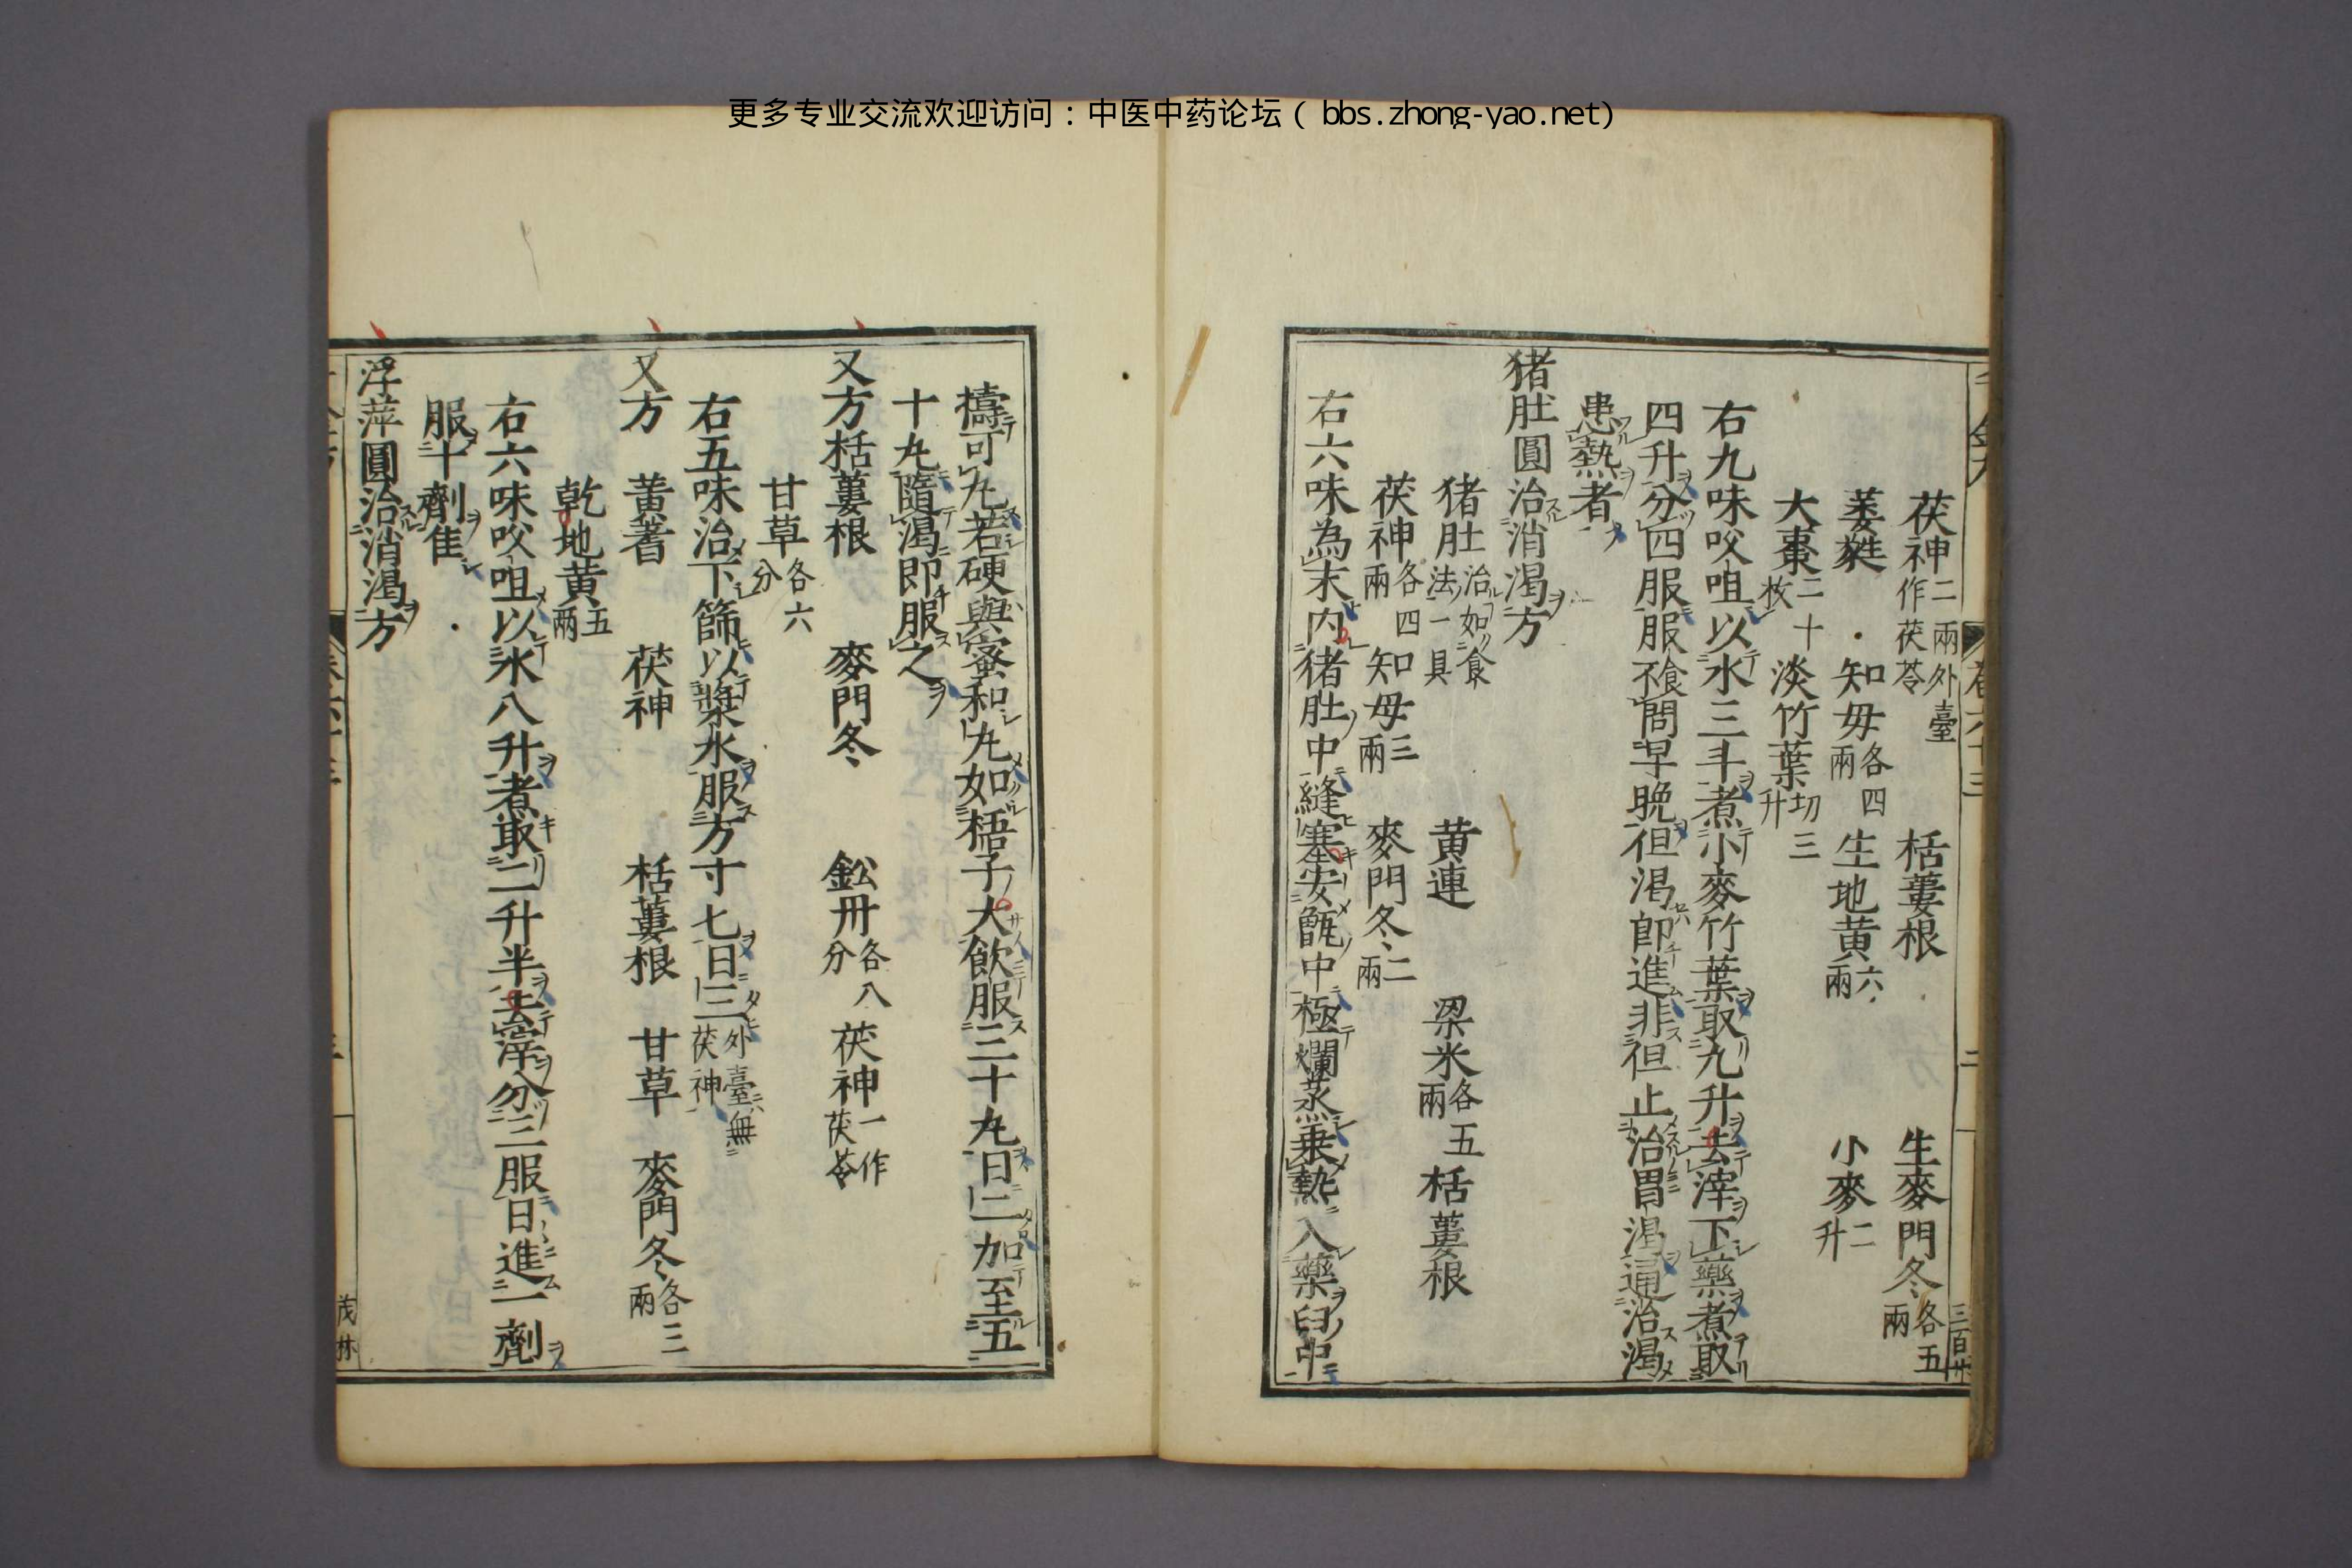 更多专业交流欢迎访问：中医中药论坛（ bbs.zhong-yao.net）
茯神二兩外臺作茯苓　栝蔞根　生麥門冬各五兩
萎蕤　知母各四兩　生地黃六兩　小麥二升
大棗二十枚　淡竹葉切三升
右九味㕮咀以水三斗煮小麥竹葉取九升去滓下藥煮取
四升分四服服不食間早晚但渴卽進非但止治胃渴通治渴
患熱者
猪肚圓治消渴方
猪肚治如食法一具　黃連　梁米各五兩　栝蔞根
茯神各四兩　知母三兩　麥門冬二兩
右六味為末內猪肚中縫塞安甑中極爛蒸乗熱入藥臼中
擣可丸若硬與蜜和丸如梧子大飲服三十丸日二加至五
十丸隨渴即服之
又方栝蔞根　麥門冬　鈆丹各八分　茯神一作茯苓
甘草各六分
右五味治下篩以漿水服方寸七日三外臺無茯神
又方　黃蓍　茯神　栝蔞根　甘草　麥門冬各三兩
乾地黃五兩
右六味㕮咀以水八升煮取二升半去滓分三服日進一劑
服十劑佳
浮萍圓治消渴方
茂林